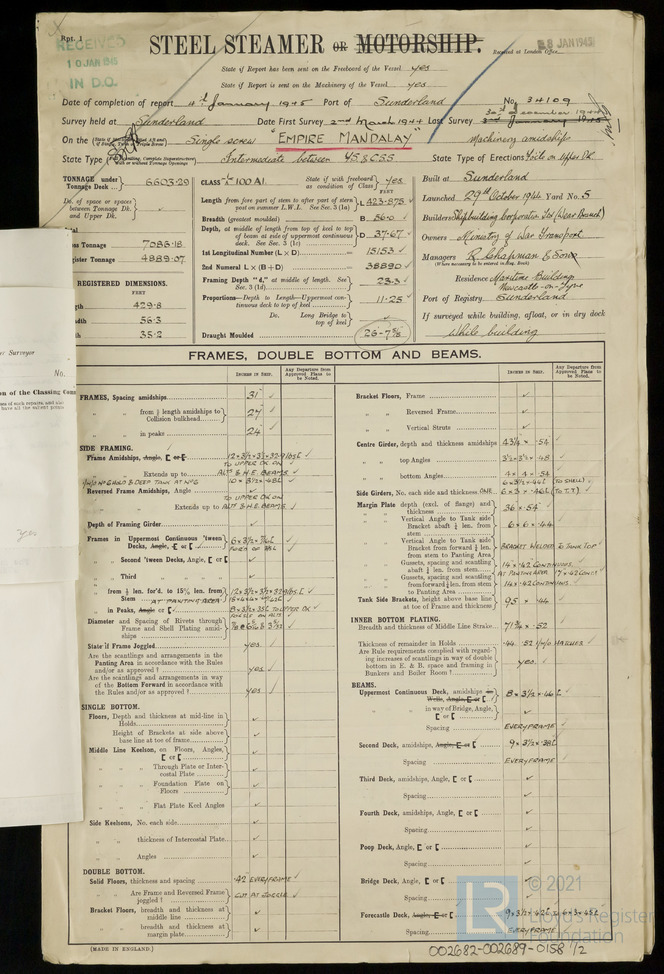 Rpt. 1
RECEIVED
10 JAN 1945
IN D.O.
STEEL STEAMER OR MOTORSHIP.
Received at London Office
8 JAN 1945
State if Report has been sent on the Freeboard of the Vessel yes
State if Report is sent on the Machinery of the Vessel yes
Date of completion of report 4th January 1945 Port of Sunderland No. 34109
Survey held at Sunderland Date First Survey 2nd March 1944 Last Survey
On the Single screw "EMPIRE MANDALAY" Machinery amidships
State Type Intermediate between State Type of Erections Foc'sle on Upper Dk
TONNAGE under Tonnage Deck 6603.29
Do. of space or spaces between Tonnage Dk. and Upper Dk.
Tonnage 7086.18
Register Tonnage 4889.07
REGISTERED DIMENSIONS.
FEET
429.8
56.3
35.2
CLASS 100 A1. State if with freeboard as condition of Class yes
FEET
Length from fore part of stem to after part of stern post on summer L.W.L. See Sec. 3 (1a) L 423.875
Breadth (greatest moulded) B 56.0
Depth, at middle of length from top of keel to top of beam at side of uppermost continuous deck. See Sec. 3 (1c) D 37.67
1st Longitudinal Number (L × D) 15153
2nd Numeral L × (B + D) 38890
Framing Depth "d," at middle of length. See Sec. 3 (1d) 23.3
Proportions—Depth to Length—Uppermost continuous deck to top of keel 11.25
Do. Long Bridge to top of keel
Draught Moulded 26-7⅝
Built at Sunderland
Launched 29th October 1944 Yard No. 5
Builders Shipbuilding Corporation Ltd (Wear Branch)
Owners Ministry of War Transport
Managers R. Chapman & Sons
(Where necessary to be entered in Reg. Book)
Residence Maritime Buildings
Newcastle-on-Tyne
Port of Registry Sunderland
If surveyed while building, afloat, or in dry dock
While building
Surveyor
No.
on of the Classing Com
yes
FRAMES, DOUBLE BOTTOM AND BEAMS.
INCHES IN SHIP.
Any Departure from Approved Plans to be Noted.
INCHES IN SHIP.
Any Departure from Approved Plans to be Noted.
FRAMES, Spacing amidships 31
" " from ⅕ length amidships to Collision bulkhead 27
" " in peaks 24
SIDE FRAMING.
Frame Amidships, Angle, [ or [
TO UPPER DK ON
Extends up to ALT'S & H.E. BEAMS
Reversed Frame Amidships, Angle
TO UPPER DK ON
" " Extends up to ALT'S & H.E. BEAMS
Depth of Framing Girder
Frames in Uppermost Continuous 'tween Decks, Angle, [ or [
" " Second 'tween Decks, Angle, [ or [
" " Third " " "
" from ⅕ len. for'd. to 15% len. from Stem AT PANTING AREA
" in Peaks, Angle or [
Diameter and Spacing of Rivets through Frame and Shell Plating amidships
State if Frame Joggled yes.
Are the scantlings and arrangements in the Panting Area in accordance with the Rules and/or as approved? yes
Are the scantlings and arrangements in way of the Bottom Forward in accordance with the Rules and/or as approved? yes
SINGLE BOTTOM.
Floors, Depth and thickness at mid-line in Holds
Height of Brackets at side above base line at toe of frame
Middle Line Keelson, on Floors, Angles, [ or [
" " Through Plate or Intercostal Plate
" " Foundation Plate on Floors
" " Flat Plate Keel Angles
Side Keelsons, No. each side
" " thickness of Intercostal Plate
" " Angles
DOUBLE BOTTOM.
Solid Floors, thickness and spacing .42 EVERY FRAME
" " Are Frame and Reversed Frame joggled?
Bracket Floors, breadth and thickness at middle line
" " breadth and thickness at margin plate
Bracket Floors, Frame
" " Reversed Frame
" " Vertical Struts
Centre Girder, depth and thickness amidships 43¾ × .54
" " top Angles 3½ × 3½ × .48
" " bottom Angles 4 × 4 × .54
Side Girders, No. each side and thickness ONE
Margin Plate depth (excl. of flange) and thickness 36 × .54
" Vertical Angle to Tank side Bracket abaft ¼ len. from stem 6 × 6 × .44
" Vertical Angle to Tank side Bracket from forward ¼ len. from stem to Panting Area BRACKET WELDED TO TANK TOP
" Gussets, spacing and scantling abaft ¼ len. from stem 14 × .42 CONTINUOUS
" Gussets, spacing and scantling from forward ¼ len. from stem to Panting Area 14 × .42 CONTINUOUS
Tank Side Brackets, height above base line at toe of Frame and thickness 95 × .44
INNER BOTTOM PLATING.
Breadth and thickness of Middle Line Strake 71¾ × .52
Thickness of remainder in Holds .44 .52 I/W/O HATCHES
Are Rule requirements complied with regarding increases of scantlings in way of double bottom in E. & B. space and framing in Bunkers and Boiler Room? yes.
BEAMS.
Uppermost Continuous Deck, amidships in Wells, Angle, [ or [ 8 × 3½ × .46
" " in way of Bridge, Angle, [ or [
Spacing EVERY FRAME
Second Deck, amidships, Angle, [ or [ 9 × 3½ × .38
Spacing EVERY FRAME
Third Deck, amidships, Angle, [ or [
Spacing
Fourth Deck, amidships, Angle, [ or [
Spacing
Poop Deck, Angle, [ or [
Spacing
Bridge Deck, Angle, [ or [
Spacing
Forecastle Deck, Angle, [ or [
Spacing EVERY FRAME
(MADE IN ENGLAND.)
LR
© 2021
Lloyd's Register
Foundation
002682-002689-0158 1/2